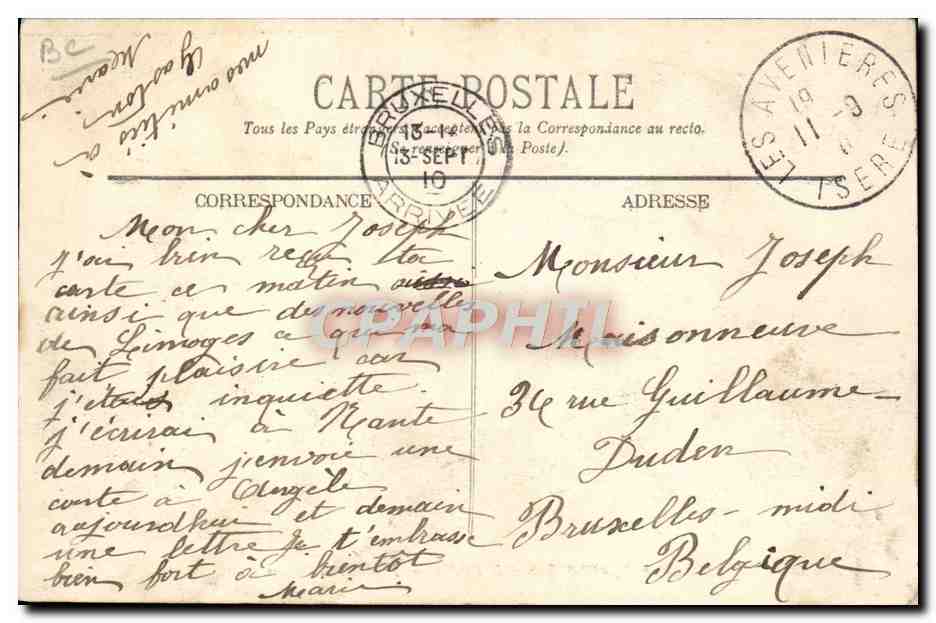 BC
mes amitiés à
Gaston
Marie
CARTE POSTALE
Tous les Pays étrangers n'acceptent pas la Correspondance au recto.
(Se renseigner à la Poste).
BRUXELLES
13-14
13-SEPT
10
ARRIVEE
LES AVENIERES
18
11 -9
ISERE
CORRESPONDANCE
ADRESSE
Mon cher Joseph
j'ai bien reçu ta
carte ce matin
ainsi que des nouvelles
de Limoges ce qui m'a
fait plaisire car
j'etais inquiette.
j'écrirai à Nante
demain j'envoie une
carte à Angèle
aujourdhui et demain
une lettre Je t'embrasse
bien fort à bientôt
Marie.
Monsieur Joseph
Maisonneuve
34 rue Guillaume-
Duden
Bruxelles-midi
Belgique
CPAPHIL